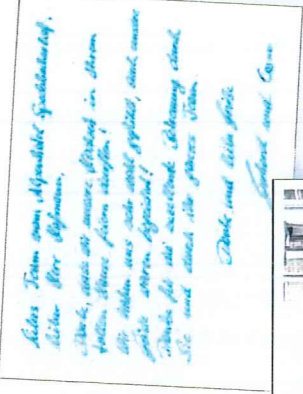 Liebes Team vom Alpenhotel
lieber Herr Hofmann,
Danke, dass wir unsere Hochzeit in Ihrem
tollen Hause feiern durften!
Wir haben uns sehr wohl gefühlt, auch unsere
Gäste waren begeistert!
Danke für die exzellente Betreuung durch
Sie und durch Ihr ganzes Team.
Danke und liebe Grüße
und